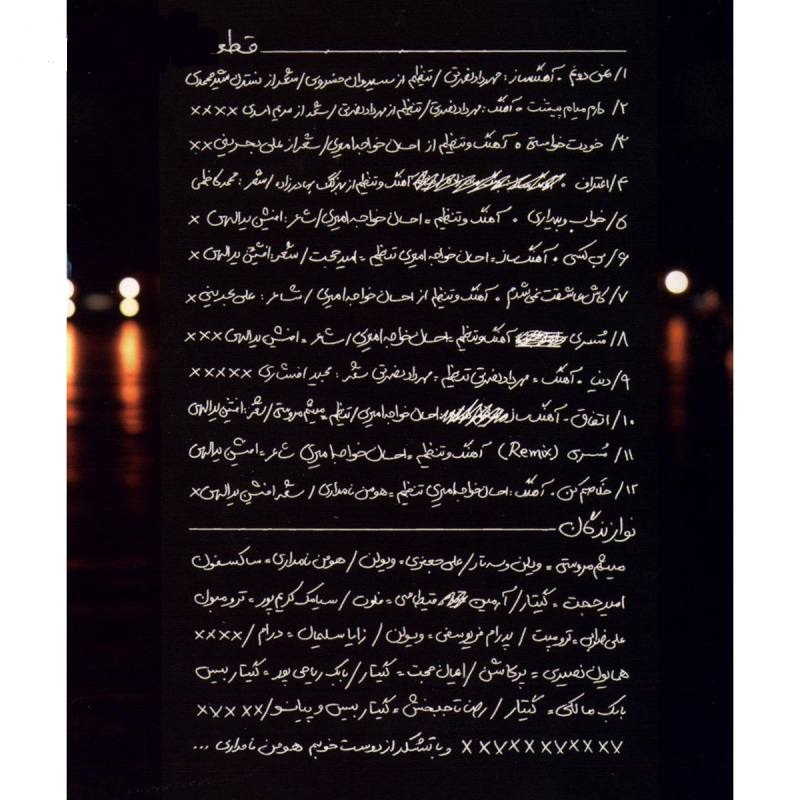 قطعه
۱/ نمی دونم . آهنگساز : مهرداد نصرتی / تنظیم از سیروان خسروی / شعر از نسترن شیرمحمدی
۲/ دارم میام پیشت . آهنگ : مهرداد نصرتی / تنظیم از مهرداد نصرتی / شعر از مریم اسدی xxxx
۳/ خودت خواستی . آهنگ و تنظیم از احسان خواجه امیری / شعر از علی بحرینی xx
۴/ اعتراف . آهنگ و تنظیم از بهزاده / شعر : محمد کاظمی
۵/ خواب و بیداری . آهنگ و تنظیم = احسان خواجه امیری / شاعر : افشین یداللهی x
۶/ بی کسی . آهنگساز = احسان خواجه امیری تنظیم = امیر حجت / شعر : افشین یداللهی x
۷/ کاش عاشقت نمی شدم . آهنگ و تنظیم از احسان خواجه امیری / شاعر : علی بحرینی x
۸/ مُسری آهنگ و تنظیم = احسان خواجه امیری / شاعر = افشین یداللهی xxx
۹/ دنیا . آهنگ = مهرداد نصرتی تنظیم = مهرداد نصرتی شعر : مجید افشاری xxxxx
۱۰/ اتفاق . آهنگساز احسان خواجه امیری / تنظیم = میثم مروستی / شعر : افشین یداللهی
۱۱/ مُسری (Remix) آهنگ و تنظیم = احسان خواجه امیری شاعر = افشین یداللهی
۱۲/ خلاصم کن . آهنگ : احسان خواجه امیری تنظیم = هومن نامداری / شعر افشین یداللهی x
نوازندگان
میثم مروستی = ویلن و سه تار / علی جعفری = ویولن / هومن نامداری = ساکسفون
امیر حجت = گیتار / آرمین = فلوت / سیامک کریم پور = ترومبون
علی = ترومپت / پدرام فریوسفی = ویولن / زایا سلیمان = درام / xxxx
همایون نصیری = پرکاشن / ایمان حجت = گیتار / بابک ریاحی پور = گیتار بیس
بابک مالکی = گیتار / رضا تاجبخش = گیتار بیس و پیانو / xxx xx
xxxxxxxxxxx و با تشکر از دوست خوبم هومن نامداری ...